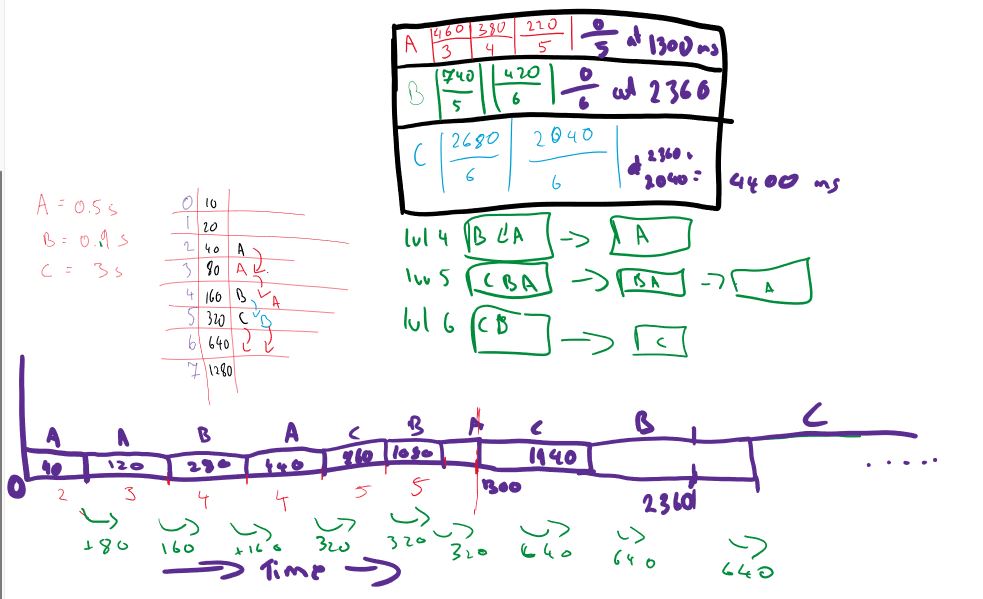 A 460/3 380/4 220/5 0/5 at 1300 ms
B 740/5 420/6 0/6 at 2360
C 2680/6 2040/6 at 2360+ 2040= 4400 ms
A = 0.5s
B = 0.9s
C = 3s
0 10
1 20
2 40 A
3 80 A
4 160 B A
5 320 C B
6 640
7 1280
lvl 4 B A -> A
lvl 5 CBA -> BA -> A
lvl 6 CB -> C
A A B A C B A C B C
40 120 280 440 760 1080 1940
0 2 3 4 4 5 5 1300 2360
+80 160 +160 320 320 320 640 640 640
Time